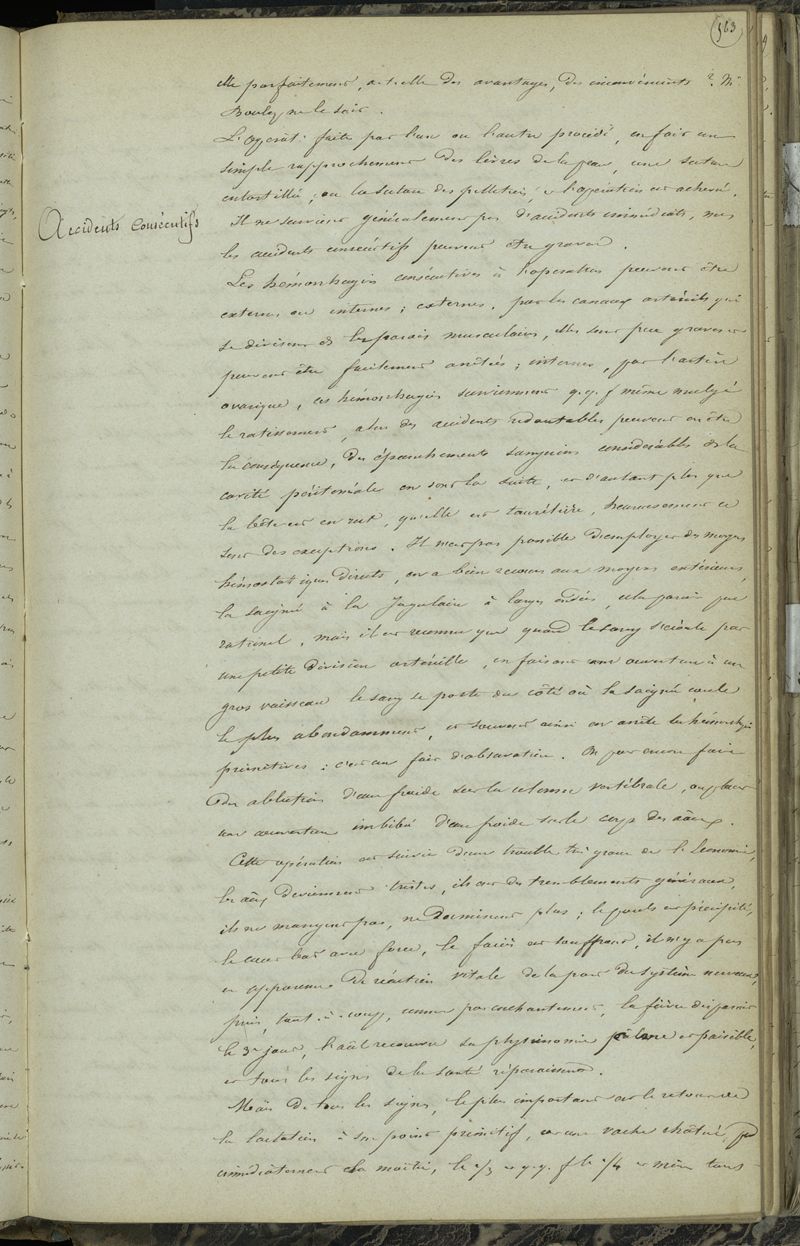 563
elle parfaitement, a-t-elle des avantages, des inconvénients ? Mr
Bouley ne le sait.
L'opérat. faite par l'un ou l'autre procédé, on fait un
simple rapprochement des lèvres de la peau, une suture
entortillée, ou la suture des pelletiers, et l'opération est achevée.
Accidents Consécutifs
Il ne survient généralement pas d'accidents immédiats, mais
les accidents consécutifs peuvent être graves.
Les hémorrhagies consécutives à l'opération peuvent être
externes ou internes ; externes, par les canaux artériels qui
se divisent ds les parois musculaires, elles sont peu graves et
peuvent être facilement arrêtées ; internes, par l'artère
ovarique, ces hémorrhagies surviennent q.q.f même malgré
le ratissement, alors des accidents redoutables peuvent en être
la conséquence, des épanchements sanguins considérables ds la
cavité péritonéale en sont la suite, et d'autant plus que
la bête est en rut, qu'elle est taurélière, heureusement ce
sont des exceptions. Il n'est pas possible d'employer des moyens
hémostatiques directs, on a bien recours aux moyens extérieurs,
la saignée à la Jugulaire à larges ondées, cela paraît peu
rationel, mais il est reconnu que quand le sang s'écoule par
une petite division artérielle, en faisant une ouverture à un
gros vaisseau le sang se porte du côté où la saignée coule
le plus abondamment, et souvent ainsi on arrête les hémorrhagies
primitives : c'est un fait d'observation. On peut encore faire
des ablutions d'eau froide sur la colonne vertébrale, ou placer
une couverture imbibée d'eau froide sur le corps des aãux.
Cette opération est suivie d'un trouble très grave de l'économie,
les aãux deviennent tristes, ils ont des tremblements généraux,
ils ne mangent pas, ne ruminent plus ; le pouls est précipité,
le cœur bat avec force, le faciès est souffrant, il n'y a pas
en apparence de réaction vitale de la part du système nerveux,
puis, tout-à-coup, comme par enchantement, la fièvre disparaît
le 3e jour, l'aãl recouvre sa physionomie calme et paisible,
et tous les signes de la santé réparaissent.
Mais de tous les signes, le plus important est le retour de
la lactation à son point primitif, car une vache châtrée, perd
immédiatement la moitié, le 1/3 et q.q.f le 1/4 et même tout